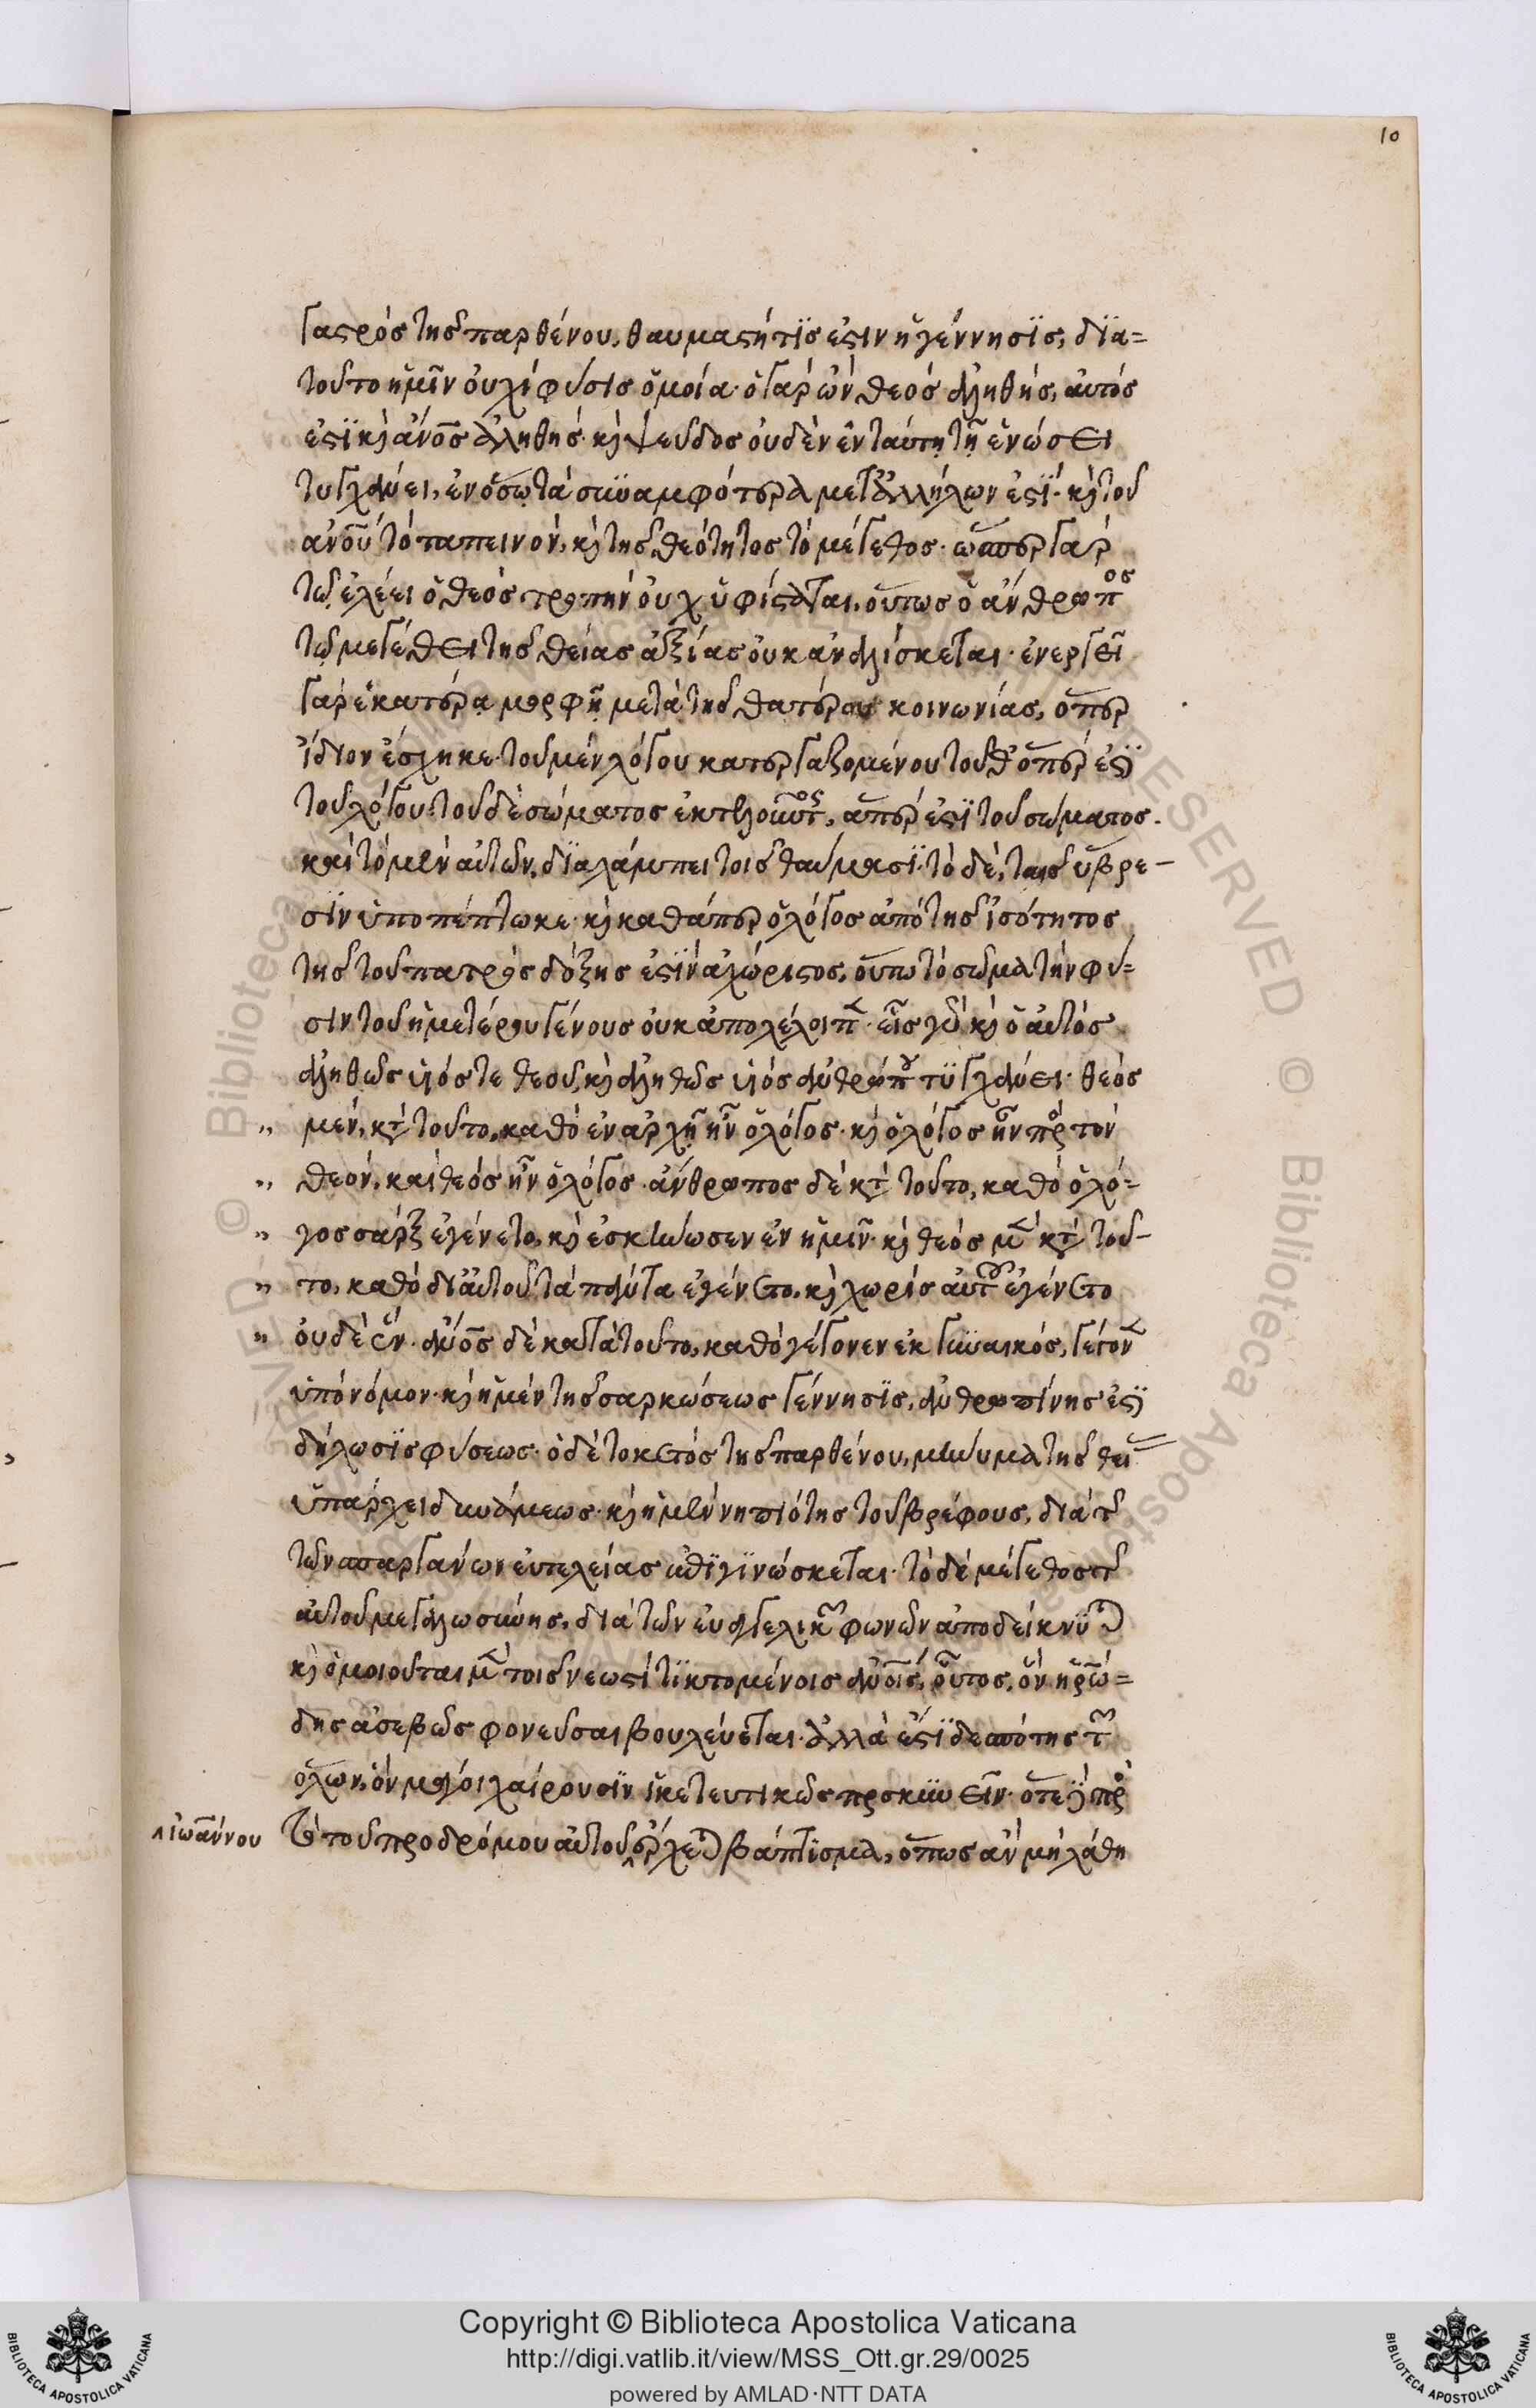 10
γαστρὸς τῆς παρθένου, θαυμαστή τΐς ἐστιν ἡ γέννησϊς, δϊα=
τοῦτο ἡμῖν οὐχὶ φύσις ὁμοία· ὁ γὰρ ὢν θεὸς ἀληθής, αὐτός
ἐστϊ κὶ ἄνος ἀληθής· κὶ ψευδος οὐδὲν ἐν ταύτῃ τῇ ἑνώσει
τυγχάνει, ἐν ὅσῳ τὰ συναμφότερα μετ' ἀλλήλων ἐστΐ· κὶ τοῦ
ἀνου τὸ ταπεινόν, κὶ τῆς θεότητος τὸ μέγεθος· ὥσπερ γὰρ
τῷ ἐλέει ὁ θεὸς τροπὴν οὐχ ὑφίσταται, οὕτως ὁ ἄνθρωπος
τῷ μεγέθει τῆς θείας ἀξίας οὐκ ἀναλίσκεται· ἐνεργεῖ
γὰρ ἑκατέρᾳ μορφῇ μετὰ τῆς θατέρου κοινωνίας, ὅπερ
ἴδιον ἔσχηκε· τοῦ μὲν λόγου κατεργαζομένου τοῦθ' ὅπερ ἐστΐ
τοῦ λόγου· τοῦ δὲ σώματος ἐκτελοῦντος, ἅπερ ἐστΐ τοῦ σώματος.
καὶ τὸ μὲν αὐτῶν, δϊαλάμπει τοῖς θαύμασϊ· τὸ δὲ, ταῖς ὕβρε-
σϊν ὑποπέπτωκε· κὶ καθάπερ ὁ λόγος ἀπὸ τῆς ἰσότητος
τῆς τοῦ πατρὸς δόξης ἐστΐν ἀχώριστος, οὕπω τὸ σῶμα τὴν φύ=
σιν τοῦ ἡμετέρου γένους οὐκ ἀπολέλοιπεν· εἷς γὰρ κὶ ὁ αὐτός
ἀληθῶς υἱός τε θεοῦ, κὶ ἀληθῶς υἱὸς ἀνθρώπου τϋγχάνει· θεὸς
„ μὲν, κατὰ τοῦτο, καθὸ ἐν ἀρχῇ ἦν ὁ λόγος· κὶ ὁ λόγος ἦν πρὸς τὸν
„ θεόν, καὶ θεὸς ἦν ὁ λόγος· ἄνθρωπος δὲ κατὰ τοῦτο, καθὸ ὁ λό=
„ γος σὰρξ ἐγένετο, κὶ ἐσκήνωσεν ἐν ἡμῖν· κὶ θεὸς μὲν κατὰ τοῦ-
„ το, καθὸ δι' αὐτοῦ τὰ πάντα ἐγένετο, κὶ χωρὶς αὐτοῦ ἐγένετο
„ οὐδὲ ἕν· ἄνος δὲ κατὰ τοῦτο, καθὸ γέγονεν ἐκ γυναικός, γέγονεν
ὑπὸ νόμον· κὶ ἡ μὲν τῆς σαρκώσεως γέννησϊς, ἀνθρωπίνης ἐστΐ
δήλωσϊς φύσεως· ὁ δὲ τοκετὸς τῆς παρθένου, μήνυμα τῆς θείας
ὑπάρχει δυνάμεως· κὶ ἡ μὲν νηπιότης τοῦ βρέφους, διὰ τῆς
τῶν σπαργάνων εὐτελείας ἐπϊγϊνώσκεται· τὸ δὲ μέγεθος τῆς
αὐτοῦ μεγαλωσύνης, διὰ τῶν εὐαγγελικῶν φωνῶν ἀποδείκνϋται
κὶ ὁμοιοῦται μὲν τοῖς νεωστὶ τϊκτομένοις ἀνοις, οὗτος, ὃν ἡρώ=
δης ἀσεβῶς φονεῦσαι βουλεύεται· ἀλλὰ ἐστΐ δεσπότης τῶν
ὅλων, ὃν μάγοι χαίρουσϊν ἱκετευτικῶς προσκυνεῖν· ὅτε ἐπὶ πρὸς
τὸ τοῦ προδρόμου αὐτοῦ ἔρχεται βάπτϊσμα, ὅπως ἂν μὴ λάθῃ
ἰωάννου
Copyright © Biblioteca Apostolica Vaticana
http://digi.vatlib.it/view/MSS_Ott.gr.29/0025
powered by AMLAD·NTT DATA
BIBLIOTECA APOSTOLICA VATICANA
BIBLIOTECA APOSTOLICA VATICANA